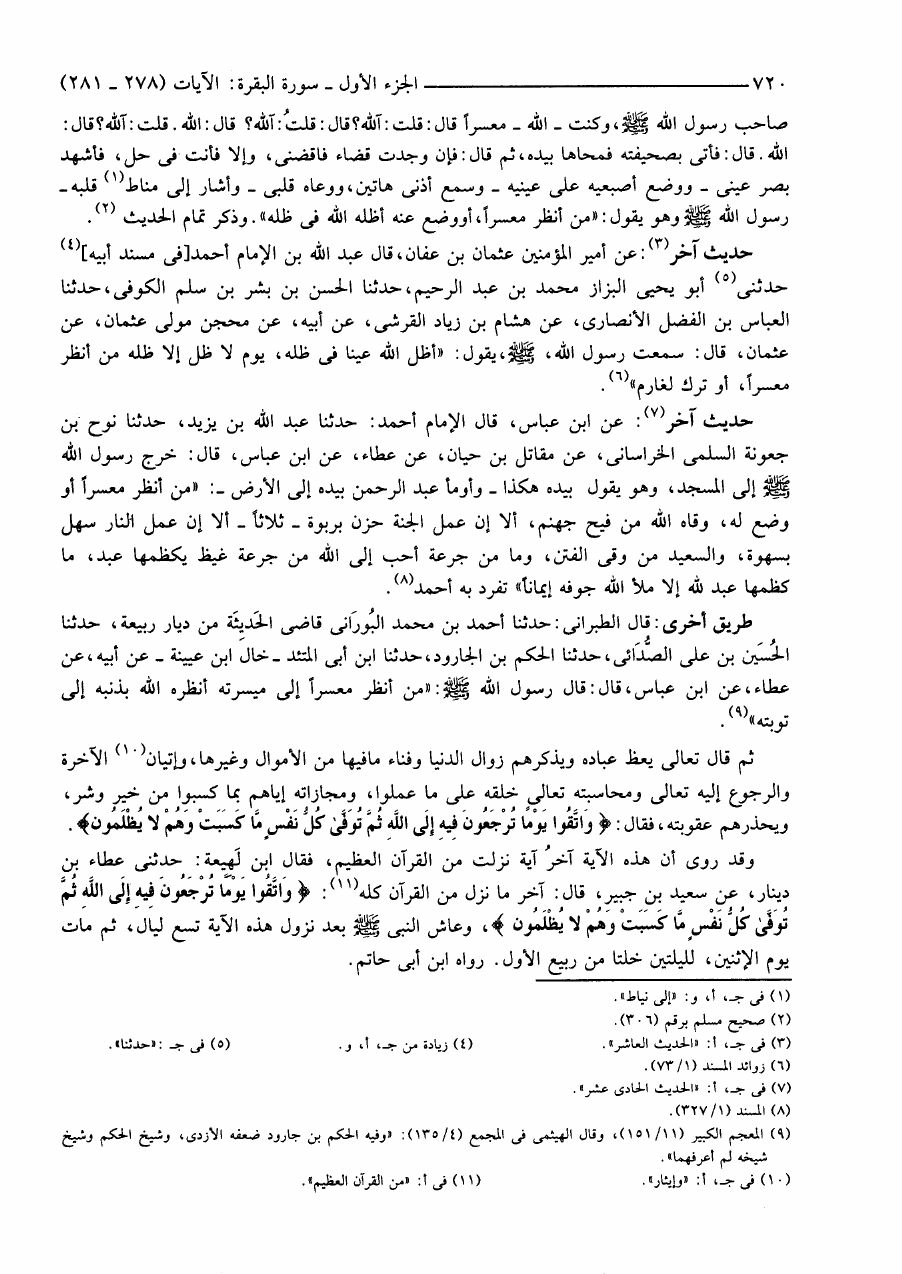 ٧٢٠ ـــــــــــــــــ الجزء الأول ـ سورة البقرة: الآيات (٢٧٨ ـ ٢٨١)
صاحب رسول الله ﷺ، وكنت ـ الله ـ معسراً قال: قلت: آلله؟ قال: قلتُ: آلله؟ قال: الله. قلت: آلله؟ قال:
الله. قال: فأتى بصحيفته فمحاها بيده، ثم قال: فإن وجدت قضاء فاقضنى، وإلا فأنت فى حل، فأشهد
بصر عينى ـ ووضع أصبعيه على عينيه ـ وسمع أذنى هاتين، ووعاه قلبى ـ وأشار إلى مناط(١) قلبه ـ
رسول الله ﷺ وهو يقول: «من أنظر معسراً، أووضع عنه أظله الله فى ظله». وذكر تمام الحديث (٢).
حديث آخر(٣): عن أمير المؤمنين عثمان بن عفان، قال عبد الله بن الإمام أحمد[فى مسند أبيه](٤)
حدثنى(٥) أبو يحيى البزاز محمد بن عبد الرحيم، حدثنا الحسن بن بشر بن سلم الكوفى، حدثنا
العباس بن الفضل الأنصارى، عن هشام بن زياد القرشى، عن أبيه، عن محجن مولى عثمان، عن
عثمان، قال: سمعت رسول الله، ﷺ، يقول: «أظل الله عينا فى ظله، يوم لا ظل إلا ظله من أنظر
معسراً، أو ترك لغارم»(٦).
حديث آخر(٧): عن ابن عباس، قال الإمام أحمد: حدثنا عبد الله بن يزيد، حدثنا نوح بن
جعونة السلمى الخراسانى، عن مقاتل بن حيان، عن عطاء، عن ابن عباس، قال: خرج رسول الله
ﷺ إلى المسجد، وهو يقول بيده هكذا ـ وأومأ عبد الرحمن بيده إلى الأرض ـ: «من أنظر معسراً أو
وضع له، وقاه الله من فيح جهنم، ألا إن عمل الجنة حزن بربوة ـ ثلاثاً ـ ألا إن عمل النار سهل
بسهوة، والسعيد من وقى الفتن، وما من جرعة أحب إلى الله من جرعة غيظ يكظمها عبد، ما
كظمها عبد لله إلا ملأ الله جوفه إيماناً» تفرد به أحمد(٨).
طريق أخرى: قال الطبرانى: حدثنا أحمد بن محمد البُورَانى قاضى الحَدِيثَة من ديار ربيعة، حدثنا
الحُسَين بن على الصُّدَائى، حدثنا الحكم بن الجارود، حدثنا ابن أبى المتئد ـ خال ابن عيينة ـ عن أبيه، عن
عطاء، عن ابن عباس، قال: قال رسول الله ﷺ: «من أنظر معسراً إلى ميسرته أنظره الله بذنبه إلى
توبته»(٩).
ثم قال تعالى يعظ عباده ويذكرهم زوال الدنيا وفناء مافيها من الأموال وغيرها، وإتيان(١٠) الآخرة
والرجوع إليه تعالى ومحاسبته تعالى خلقه على ما عملوا، ومجازاته إياهم بما كسبوا من خير وشر،
ويحذرهم عقوبته، فقال: ﴿ وَاتَّقُوا يَوْمًا تُرْجَعُونَ فِيهِ إِلَى اللَّهِ ثُمَّ تُوَفَّىٰ كُلُّ نَفْسٍ مَّا كَسَبَتْ وَهُمْ لا يُظْلَمُون﴾.
وقد روى أن هذه الآية آخرُ آية نزلت من القرآن العظيم، فقال ابن لَهِيعة: حدثنى عطاء بن
دينار، عن سعيد بن جبير، قال: آخر ما نزل من القرآن كله(١١): ﴿ وَاتَّقُوا يَوْمًا تُرْجَعُونَ فِيهِ إِلَى اللَّهِ ثُمَّ
تُوَفَّىٰ كُلُّ نَفْسٍ مَّا كَسَبَتْ وَهُمْ لا يُظْلَمُون ﴾، وعاش النبى ﷺ بعد نزول هذه الآية تسع ليال، ثم مات
يوم الإثنين، لليلتين خلتا من ربيع الأول. رواه ابن أبى حاتم.
(١) فى جـ، أ، و: «إلى نياط».
(٢) صحيح مسلم برقم (٣٠٠٦).
(٣) فى جـ، أ: «الحديث العاشر». (٤) زيادة من جـ، أ، و. (٥) فى جـ :«حدثنا».
(٦) زوائد المسند (٧٣/١).
(٧) فى جـ، أ: «الحديث الحادى عشر».
(٨) المسند (٣٢٧/١).
(٩) المعجم الكبير (١٥١/١١)، وقال الهيثمى فى المجمع (١٣٥/٤): «وفيه الحكم بن جارود ضعفه الأزدى، وشيخ الحكم وشيخ
شيخه لم أعرفهما».
(١٠) فى جـ، أ: «وإيثار». (١١) فى أ: «من القرآن العظيم».